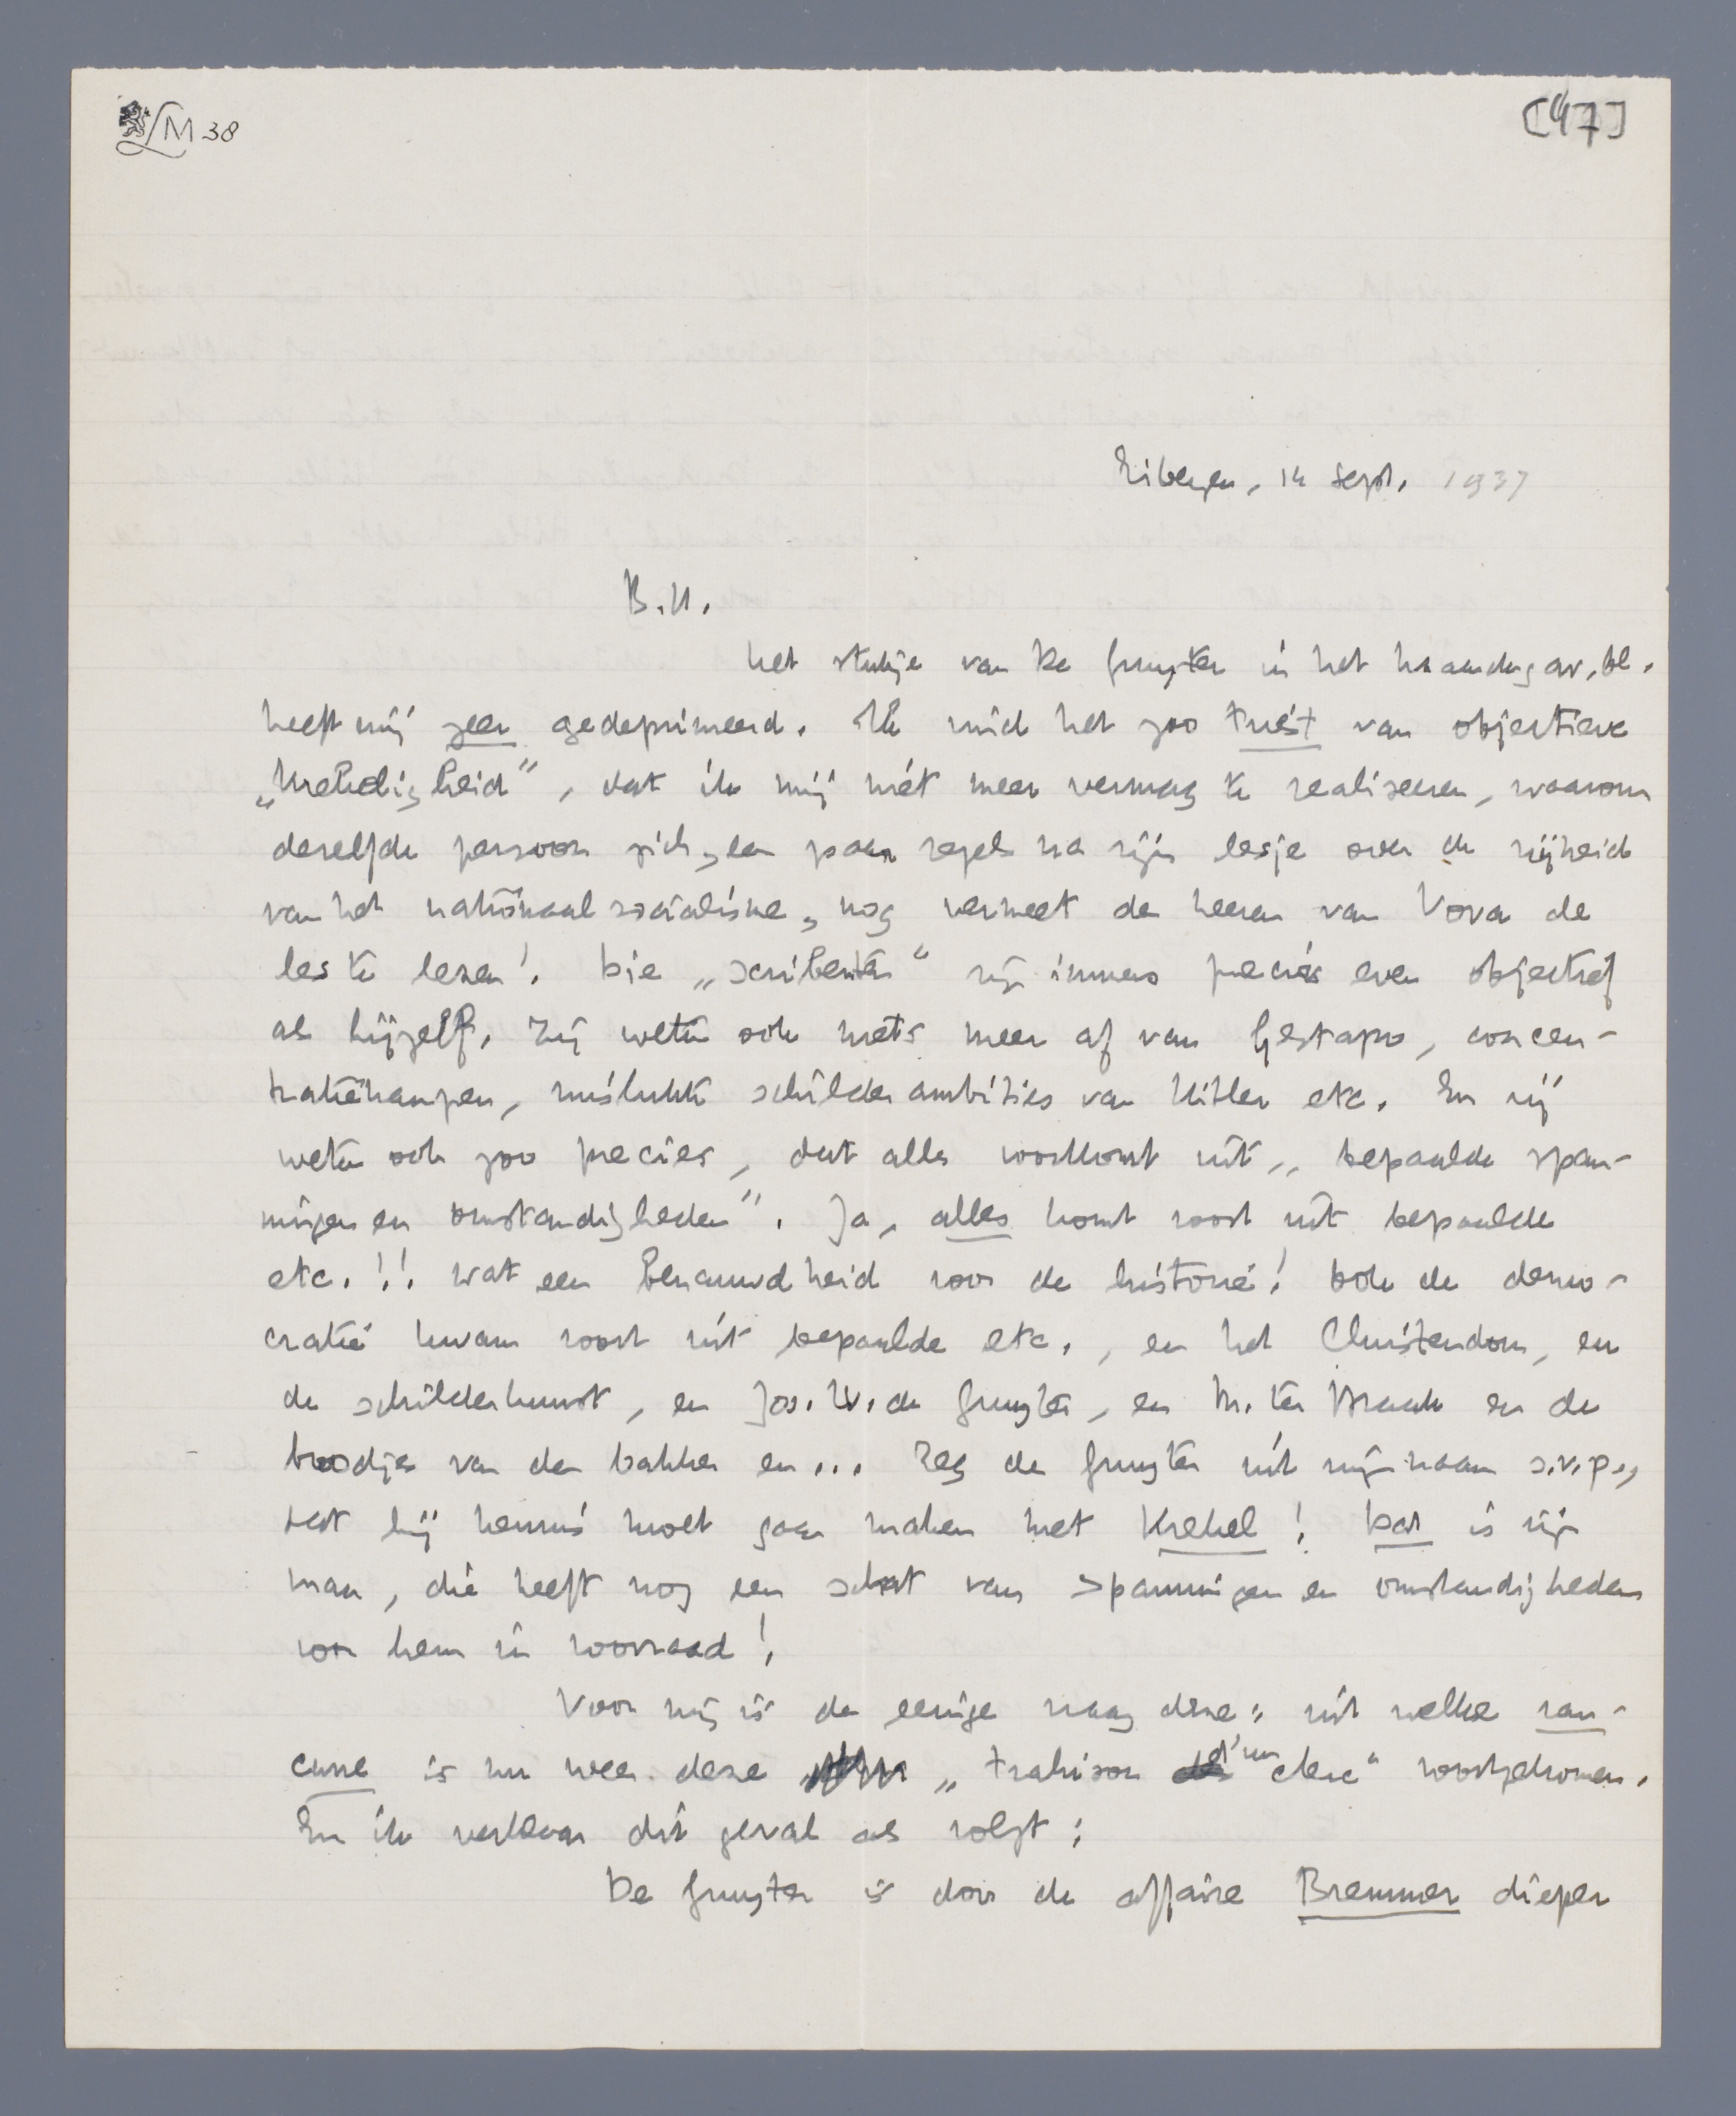 LM 38
[47]
Eibergen, 14 Sept. 1937
B.H.
het stukje van De Gruyter in het Maandagav.bl.
heeft mij zeer gedeprimeerd. Ik vind het zoo triest van objectieve
„krekeligheid”, dat ik mij niet meer vermag te realiseeren, waarom
dezelfde persoon zich, een paar regels na zijn lesje over de vrijheid
van het nationaalsocialisme, nog vermeet de heeren van Vova de
les te lezen! Die „scribenten” zijn immers precies even objectief
als hijzelf. Zij weten ook niets meer af van Gestapo, concen-
tratiekampen, mislukte schilderambities van Hitler etc. En zij
weten ook zoo precies, dat alles voortkomt uit „bepaalde span-
ningen en omstandigheden”. Ja, alles komt voort uit bepaalde
etc.!!. Wat een benauwdheid voor de historie! Ook de demo-
cratie kwam voort uit bepaalde etc., en het Christendom, en
de schilderkunst, en Jos. W. de Gruyter, en M. ter Braak en de
broodjes van den bakker en... Zeg de Gruyter uit mijn naam s.v.p.,
dat hij kennis moet gaan maken met Krekel! Dat is zijn
man, die heeft nog een schat van spanningen en omstandigheden
voor hem in voorraad!
Voor mij is de eenige vraag deze: uit welke ran-
cune is nu weer deze „trahison d'un clerc” voortgekomen.
En ik verklaar dit geval als volgt:
De Gruyter is door de affaire Bremmer dieper